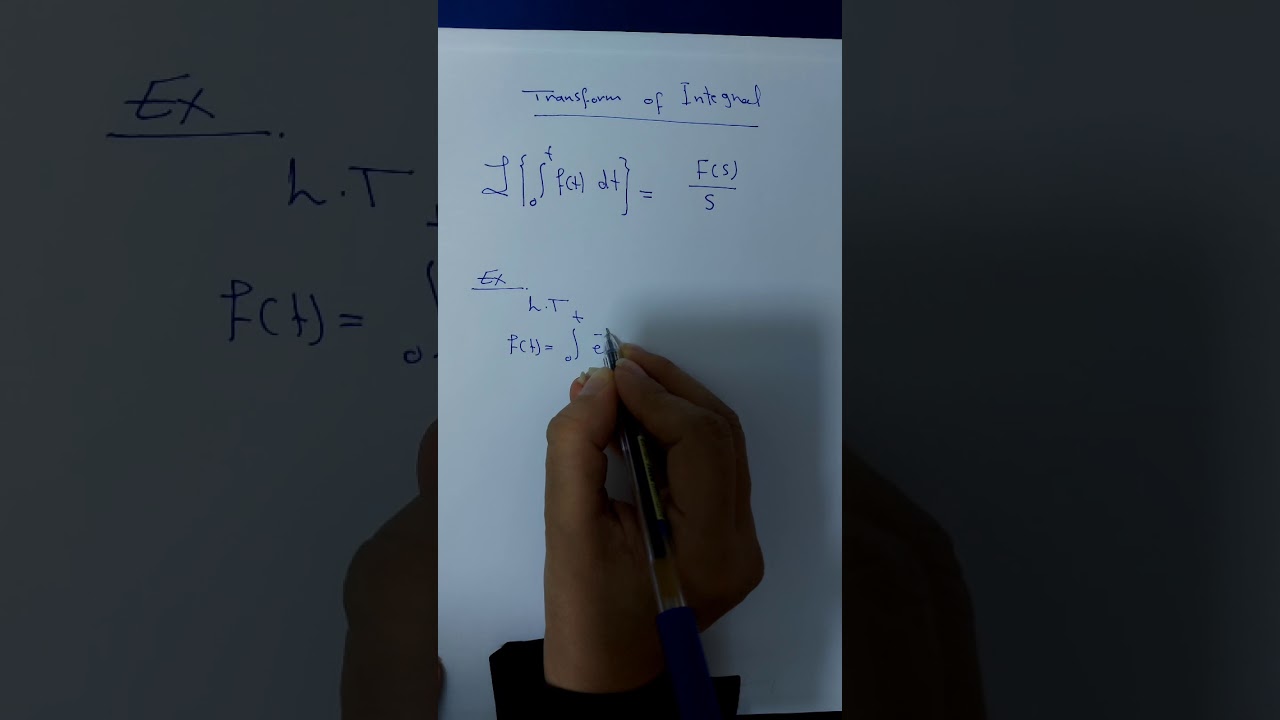 Transform of Integral
ℒ{∫₀ᵗ f(t) dt} = F(s)/s
Ex.
L.T
f(t) = ∫₀ᵗ e⁻